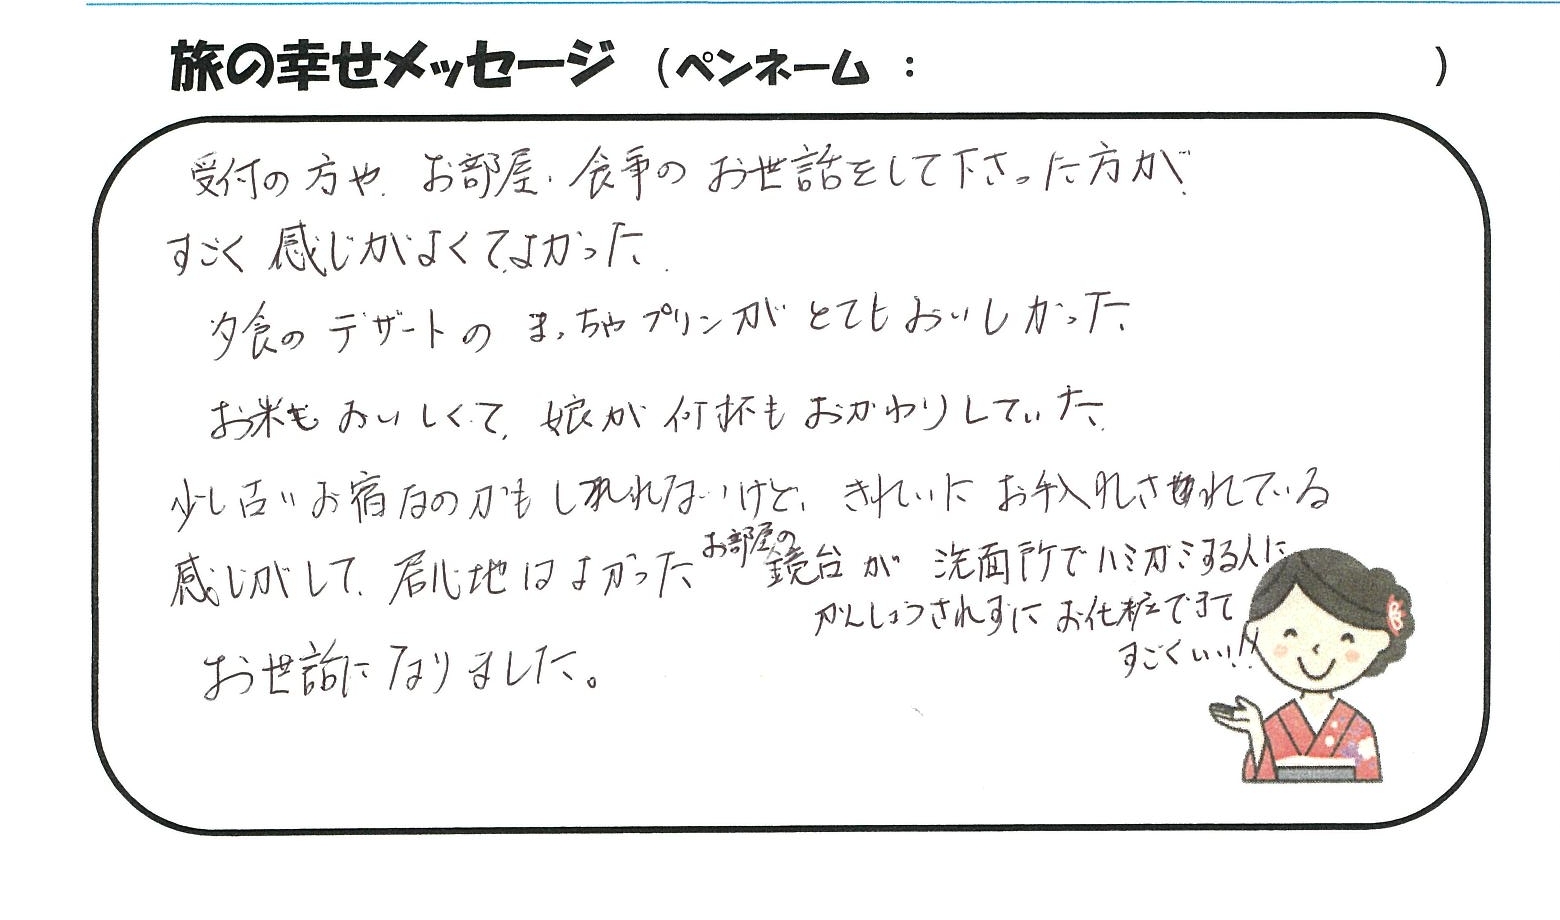 旅の幸せメッセージ （ペンネーム ： ）
受付の方や、お部屋・食事のお世話をして下さった方が、
すごく感じがよくてよかった。
夕食のデザートのまっちゃプリンがとてもおいしかった
お米もおいしくて、娘が何杯もおかわりしていた。
少し古いお宿なのかもしれないけど、きれいにお手入れされている
感じがして、居心地はよかった
お部屋の
鏡台が洗面所でハミガミする人に
かんしょうされずにお化粧できて
すごくいい!!
お世話になりました。